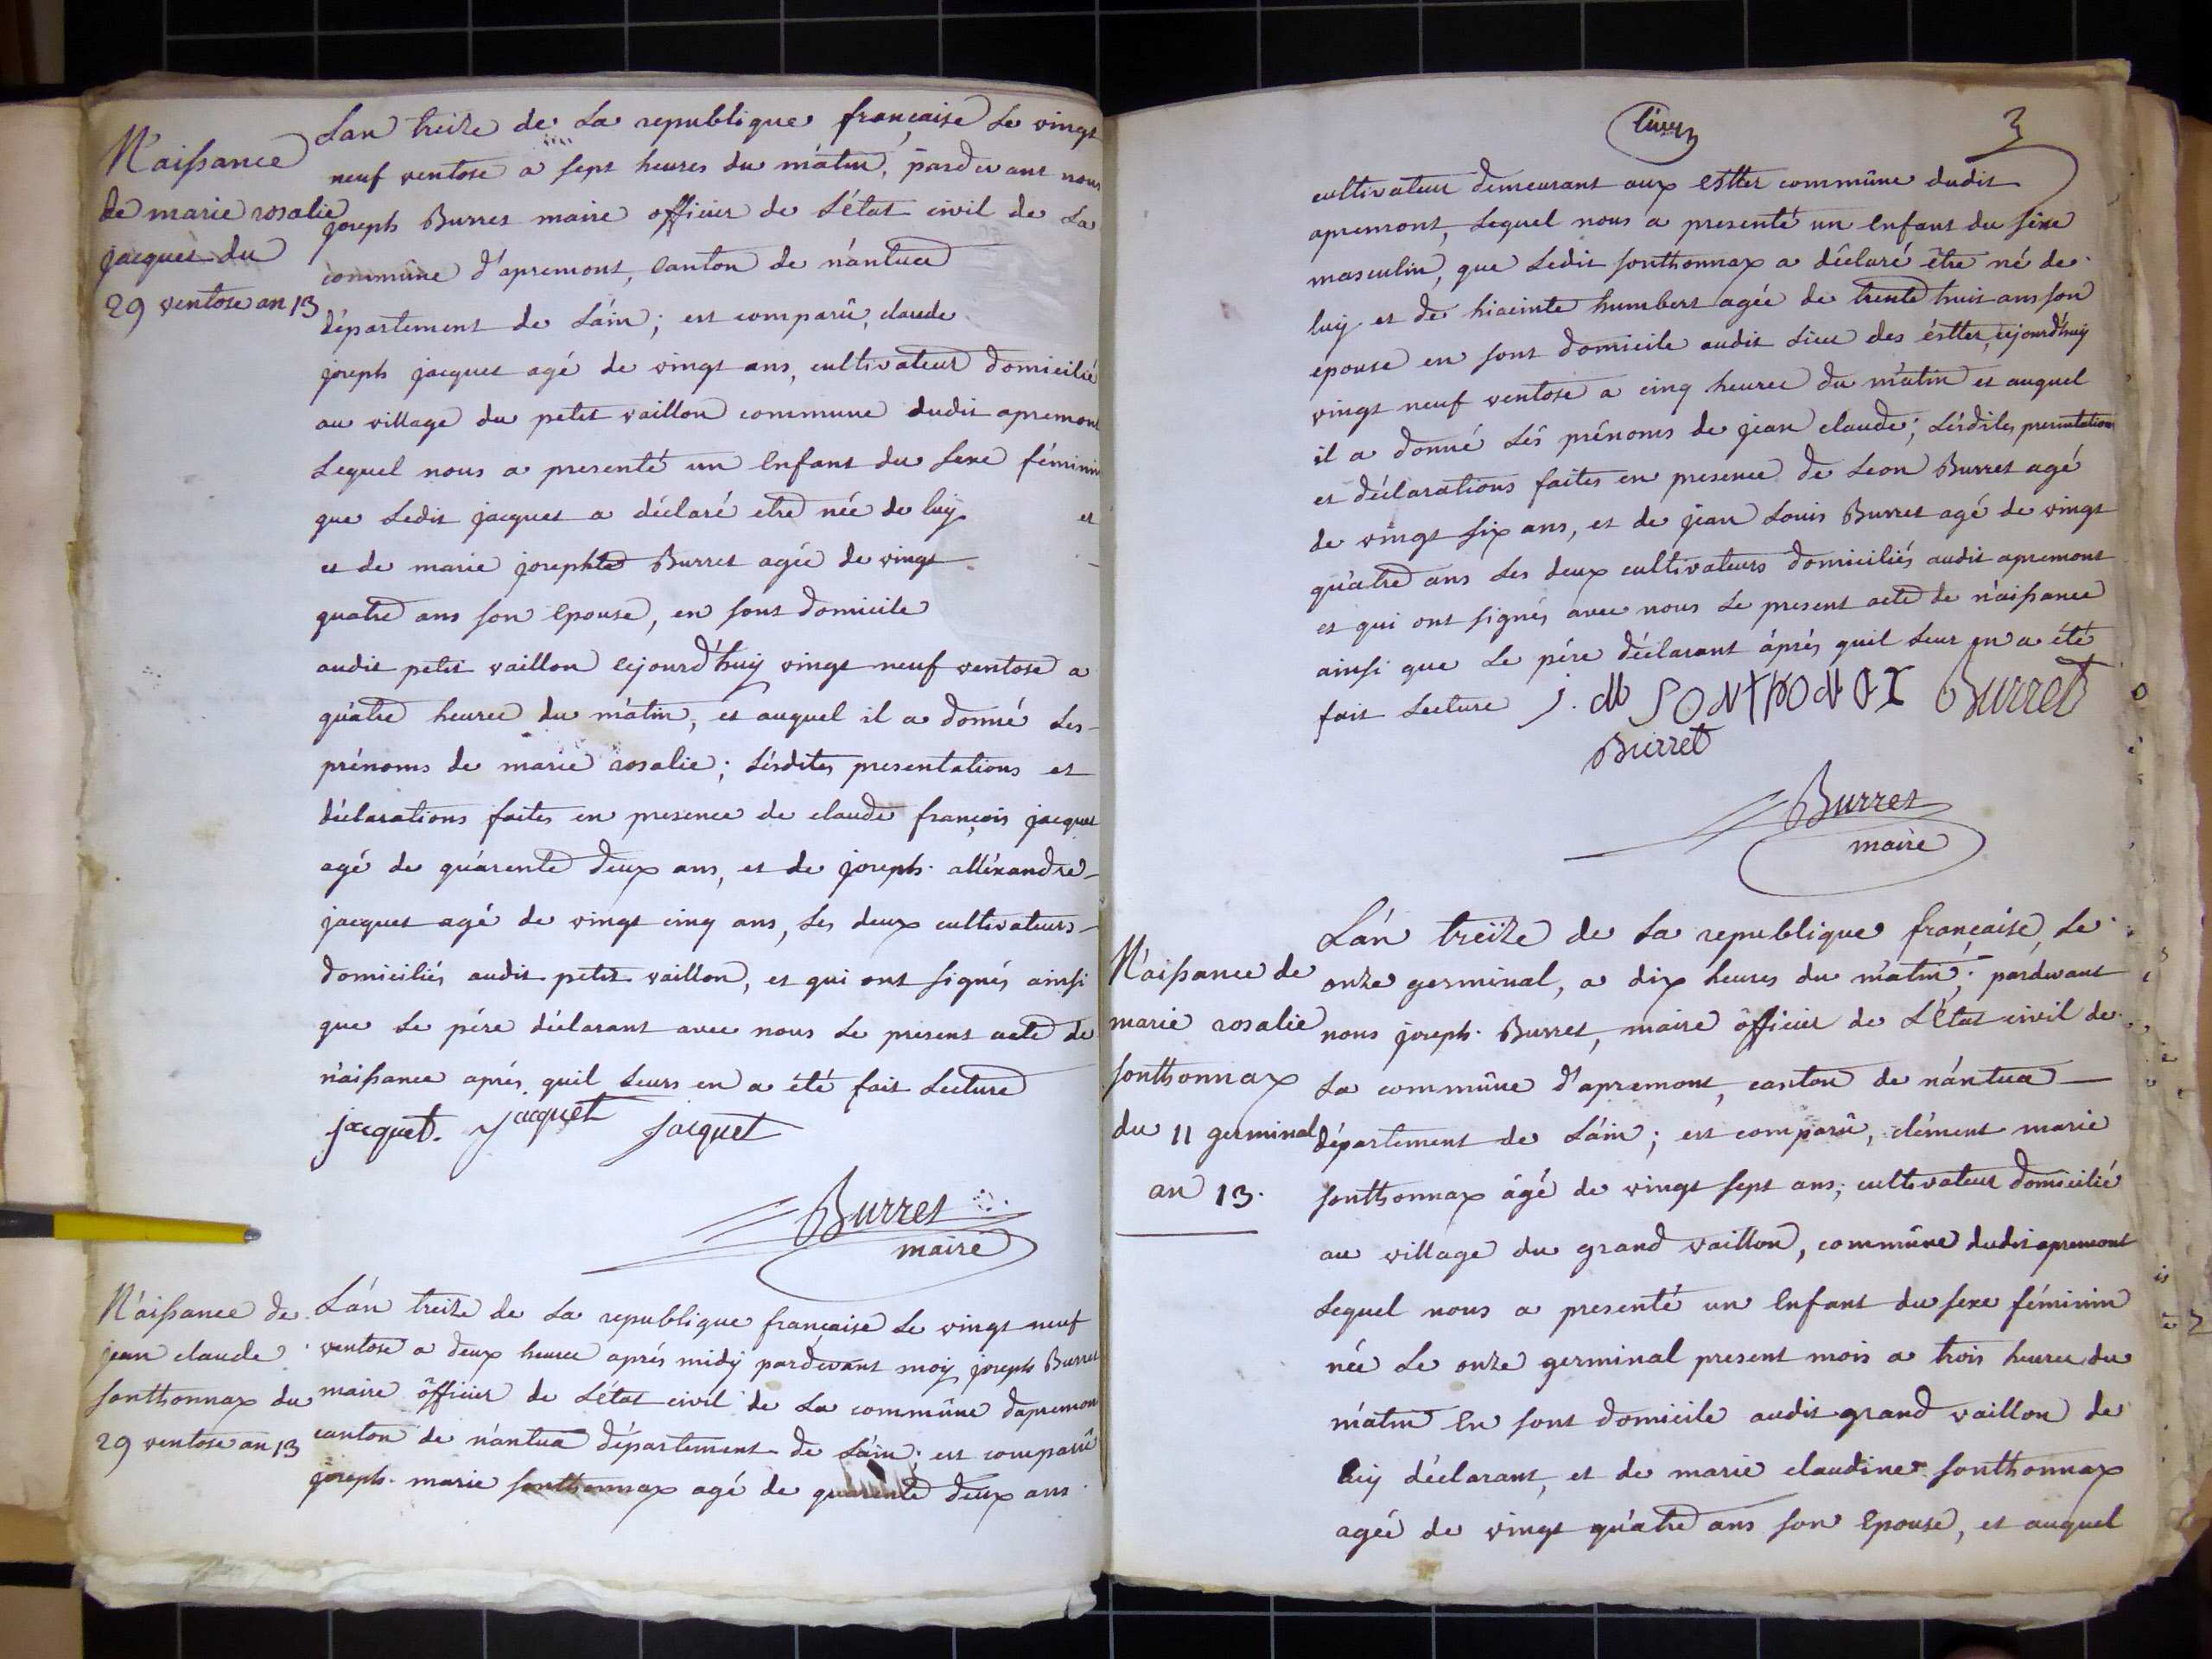 Naissance
de marie rosalie
jacques du
29 ventose an 13
Lan treize de La republique française Le vingt
neuf ventose a sept heures du matin, pardevant nous
joseph Burret maire officier de L'état civil de La
commûne d'apremont, canton de nántua
département de Láin; est comparû, claude
joseph jacquet agé de vingt ans, cultivateur domicilié
au village du petit vaillon commune dudit apremont
Lequel nous a presenté un Enfant du sexe féminin
que Ledit jacquet a déclaré etre née de luy et
et de marie josephte Burret agée de vingt
quatre ans son Epouse, en sont domicile
audit petit vaillon cejourd'huy vingt neuf ventose a
quatre heures du matin, et auquel il a donné Les
prénoms de marie rosalie; Lésdites presentations et
déclarations faites en presence de claude françois jacquet
agé de quárente deux ans, et de joseph alléxandre
jacquet agé de vingt cinq ans, Les deux cultivateurs
domiciliés audit petit vaillon, et qui ont signés ainsi
que Le pére déclarant avec nous Le present acte de
naissance aprés quil Leurs en a été fait Lecture
jacquet. jacquet Jacquet
Burret
maire
Naissance de
jean claude
sonthonnax du
29 ventose an 13
Lán treize de La republique française Le vingt neuf
ventose a deux heures aprés midÿ pardevant moÿ joseph Burret
maire officier de L'état civil de La commûne dapremont
canton de nántua département de Láin; est comparû
joseph marie sonthonnax agé de quarente deux ans
3
cultivateur demeurant aux Estter commûne dudit
apremont, Lequel nous a presenté un Enfant du sexe
masculin, que Ledit sonthonnax a déclaré être né de
luÿ et de hiacinte humbert agée de trente huit ans son
epouse en sont domicile audit Lieu des éstter, cejourd'huÿ
vingt neuf ventose a cinq heures du matin et auquel
il a donné Lés prénoms de jean claude; Lésdites presentations
et déclarations faites en presence de Leon Burret agé
de vingt six ans, et de jean Louis Burret agé de vingt
quatre ans Les deux cultivateurs domiciliés audit apremont
et qui ont signés avec nous Le present acte de naissance
ainsi que Le pére déclarant áprés quil Leur en a été
fait Lecture j. M SONTHONAX Burret
Burret
Burret
maire
Naissance de
marie rosalie
sonthonnax
du 11 germinal
an 13.
Lán treize de La republique française, Le
onze germinal, a dix heures du matin; pardevant
nous joseph Burret, maire officier de L'état civil de
La commûne d'apremont, canton de nántua
département de Láin; est comparû, clément marie
sonthonnax âgé de vingt sept ans; cultivateur domicilié
au village du grand vaillon, commûne dudit apremont
Lequel nous a presenté un Enfant du sexe féminin
née Le onze germinal present mois a trois heures du
matin En sont domicile audit grand vaillon de
luy déclarant, et de marie claudine sonthonnax
agée de vingt quatre ans son Epouse, et auquel